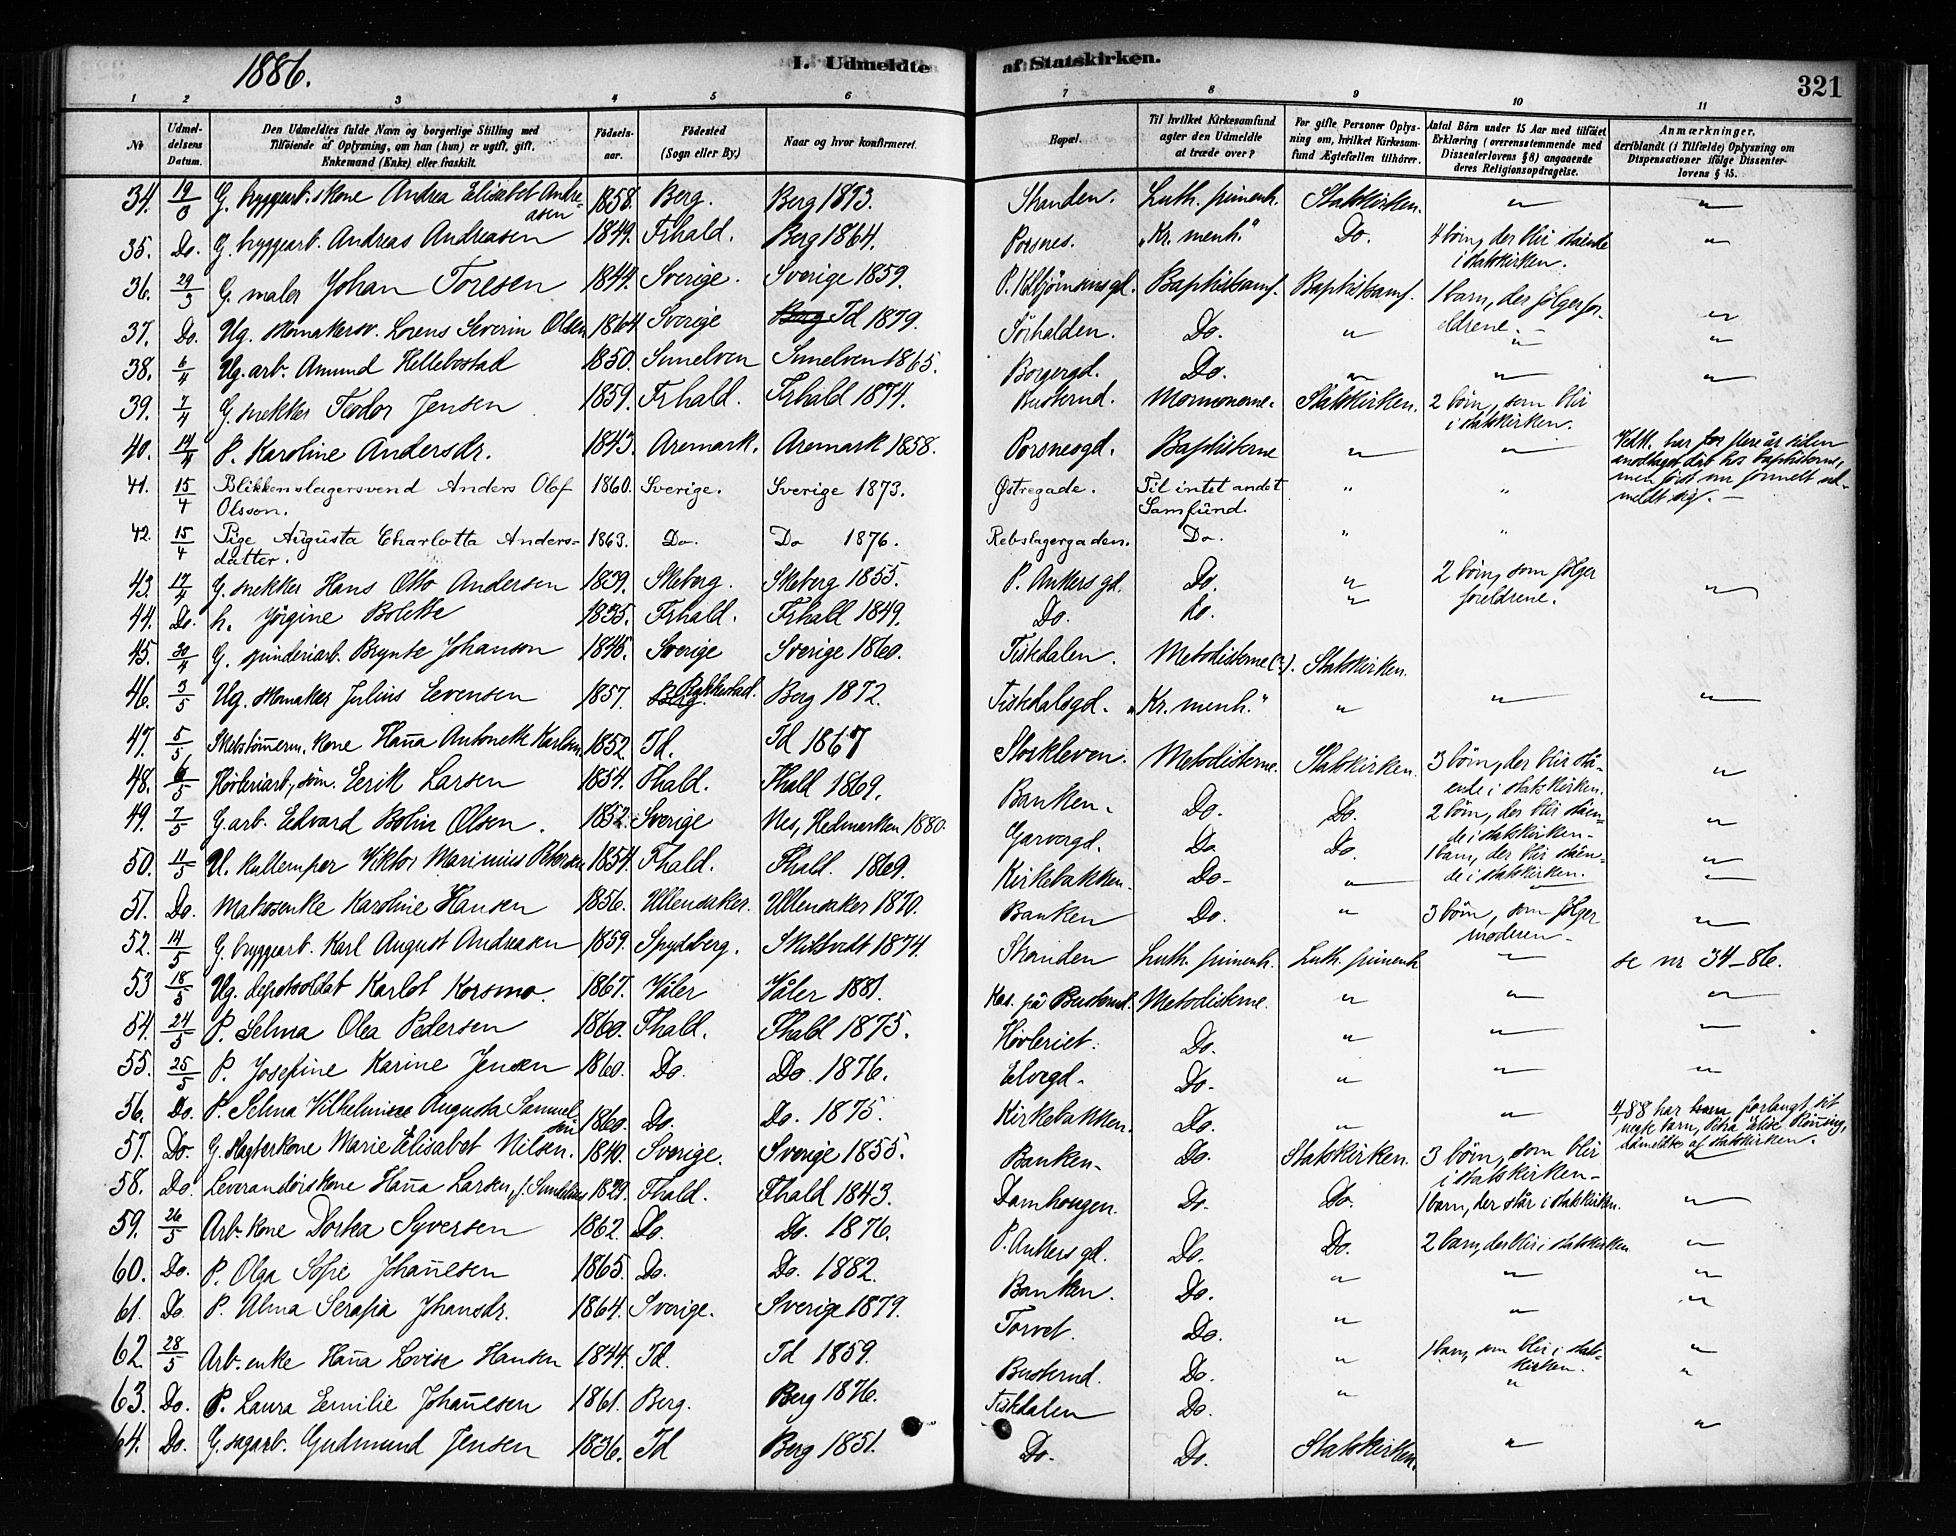 1886.
I. Udmeldte af Statskirken.
321
1 2 3 4 5 6 7 8 9 10 11
No
Udmeldelsens Datum.
Den Udmeldtes fulde Navn og borgerlige Stilling med
Tilføiende af Oplysning, om han (hun) er ugift, gift,
Enkemand (Enke) eller fraskilt.
Fødselsaar.
Fødested
(Sogn eller By.)
Naar og hvor konfirmeret.
Bopæl.
Til hvilket Kirkesamfund
agter den Udmeldte
at træde over?
For gifte Personer Oplys-
ning om, hvilket Kirkesam-
fund Ægtefællen tilhører.
Antal Børn under 15 Aar med tilføiet
Erklæring (overensstemmende med
Dissenterlovens § 8) angaaende
deres Religionsopdragelse.
Anmærkninger,
deriblandt (i Tilfælde) Oplysning om
Dispensationer ifølge Dissenter-
lovens § 15.
34. G. bryggearb. kone Andrea Elisabet Andreasen 1858. Berg. Berg 1873. Stranden. Luth. frimenh. Statskirken. " "
35. Do. G. bryggearb. Andreas Andreasen 1849. Frhald. Berg 1864. Porsnes. "Kr. menh." Do. 4 børn, der blir stående i statskirken. "
36. 29/3 G. maler Johan Toresen 1844. Sverige. Sverige 1859. Baptistsamf. Baptistsamf. 1 barn, der følger forældrene. "
37. Do. Ug. skomakersv. Lorens Severin Olsen 1864 Sverige Berg Id 1879. Sørhalden. Do. " " "
38. 6/4 Ug. arb. Amund Hellebostad 1850. Sunelven Sunelven 1865. Borgergd. Do. " " "
39. 7/4 G. snekker Teodor Jensen 1859. Frhald. Frhald 1874. Busterud. Mormonerne. Statskirken. 2 børn, som blir i statskirken.
40. 14/4 P. Karoline Andersdr. 1843. Aremark. Aremark 1858. Porsnesgd. Baptisterne " " Vedk. har for flere år siden modtaget dåb hos baptisterne, men først nu formelt udmeldt sig. –
41. 15/4 Blikkenslagersvend Anders Olof Olsson. 1860. Sverige. Sverige 1873. Østregade. Til intet andet Samfund. " "
42. 15/4 Pige Augusta Charlotta Andersdatter. 1863. Do. Do 1876. Rebslagergaden. Do. " "
43. 17/4 G. snekker Hans Otto Andersen 1839. Skeberg. Skeberg 1855. P. Ankers gd. Do. " 2 børn, som følger foreldrene. "
44. Do. h. Jørgine Bolette 1835. Frhald. Frhald 1849. Do. Do. "
45. 30/4 G. spinderiarb. Brynte Johanson 1845. Sverige Sverige 1860. Tistedalen. Metodisterne (?). Statskirken.
46. 3/5 Ug. skomaker Julius Evensen 1857. Berg. Rakkestad. Berg 1872. Tistedalsgd. "Kr. menh." " " "
47. 5/5 kone Hanna Antonette Karlsen 1852 Id. Id 1867 Storkleven. Metodisterne. Statskirken. 3 børn, der blir stående i statskirken. "
48. 6/5 Høvleriarb., søm. Eerik Larsen 1854. Fhald. Fhald 1869. Banken. Do. Do. 2 børn, der blir stående i statskirken. "
49. 7/5 G. arb. Edvard Bolin Olsen. 1852. Sverige Nes, Hedmarken 1880. Garvergd. Do. Do. 1 barn, der blir stående i statskirken. "
50. 11/5 U. kullemper Viktor Marinius Petersen 1854. Fhald. Fhald. 1869. Kirkebakken. Do. " " "
51. Do. Matrosenke Karoline Hansen 1856. Ullensaker. Ullensaker 1870. Banken Do. " 3 børn, som følger moderen. "
52. 14/5 G. bryggearb. Karl August Andreasen 1859. Spydeberg. Skiltvedt 1874. Stranden Luth. frimenh. Luth. frimenh " se nr 34–86.
53 18/5 Ug. depotsoldat Karlot Korsmo. 1867. Våler Våler 1881. Kas. på Busterud. Metodisterne. " " "
54. 24/5 P. Selma Olea Pedersen 1860. Fhald. Fhald 1875. Høvleriet. Do. " " "
55. 25/5 P. Josefine Karine Jensen 1860. Do. Do. 1876. Elvegd. Do. " " "
56. Do. P. Selma Vilhelmine Augusta Samuelsen 1860. Do. Do. 1875. Kirkebakken. Do. " " 88 har forlangt sit barn, udmeldt af statskirken.
57. Do. G. slagterkone Marie Elisabet Nilsen. 1840. Sverige. Sverige 1855. Banken. Do. Statskirken. 3 børn, som blir i statskirken.
58. Do. Leverandørskone Hanna Larsen, f. 1829. Fhald. Fhald 1843. Damhougen. Do. Do. 1 barn, der står i statskirken. "
59. 26/5 Arb. kone Dortea Syversen 1862. Do. Do. 1876. P. Ankers gd. Do. Do. 2 barn, der blir i statskirken "
60. Do. P. Olga Sofie Johannesen 1865. Do. Do. 1882. Banken. Do. " " "
61. Do. P. Alma Serafia Johansdr. 1864. Sverige. Sverige 1879. Torvet. Do. " " "
62. 28/5 Arb. enke Hanna Lovise Hansen 1844. Id. Id 1859. Busterud. Do. " 1 barn, som blir i statskirken. "
63. Do. P. Laura Emilie Johannesen 1861. Berg. Berg 1876. Tistedalen Do. " " "
64. Do. G. sagarb. Gudmund Jensen 1836. Id Berg 1851. Do. Do. Statskirken. " "